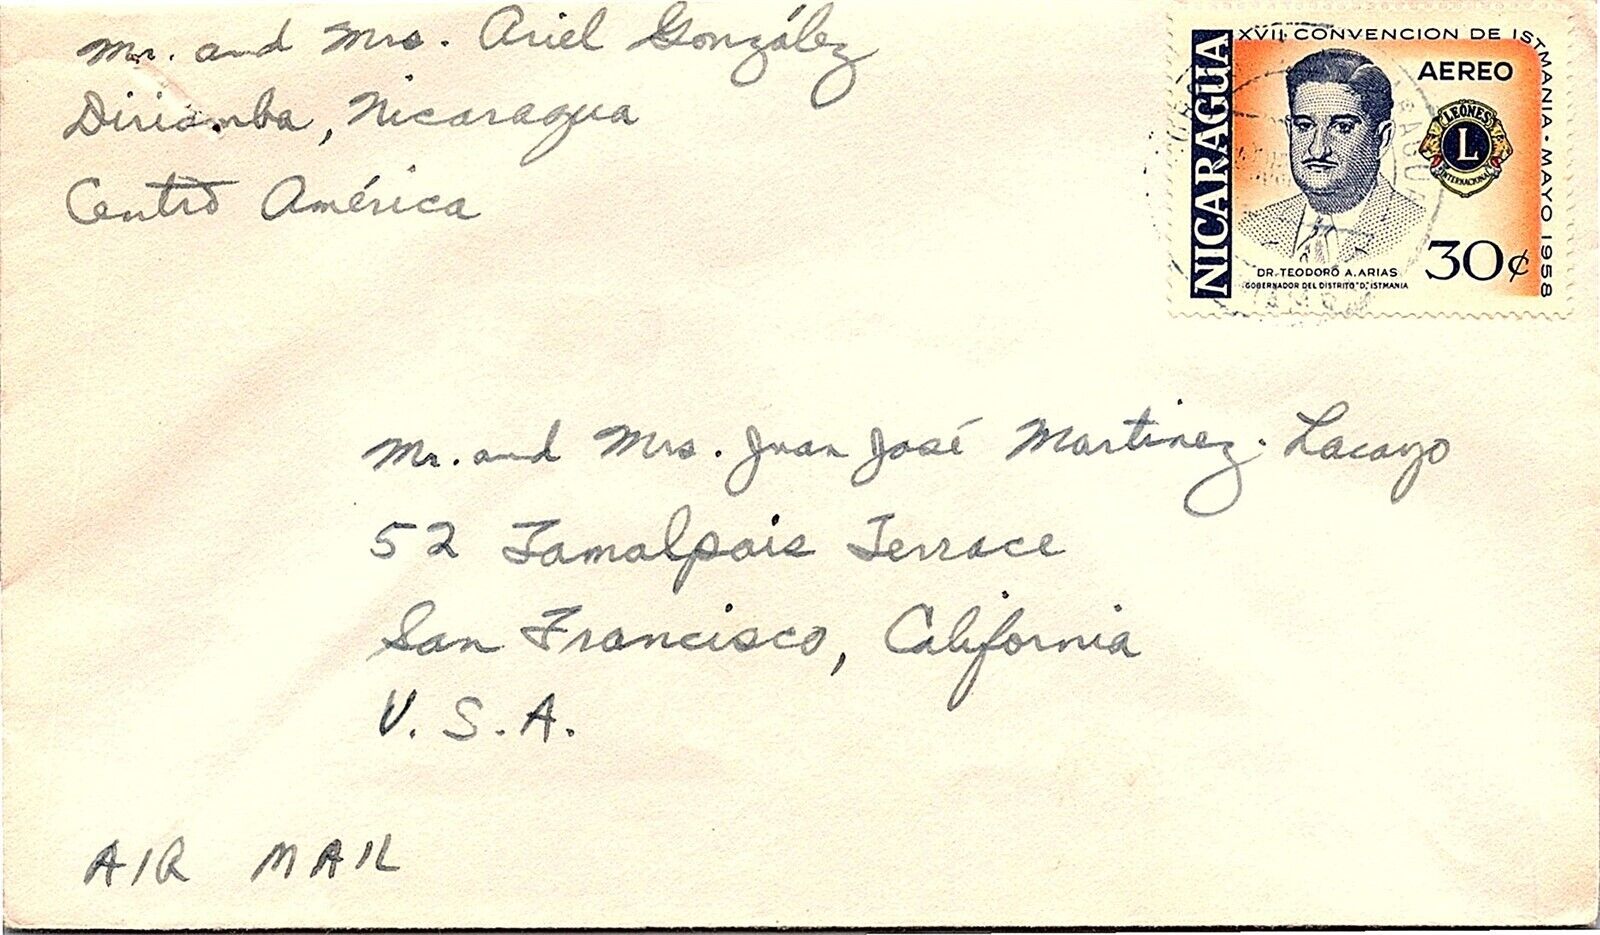 Mr. and Mrs. Ariel González
Diriamba, Nicaragua
Centro América
NICARAGUA
XVII CONVENCION DE ISTMANIA · MAYO 1958
AEREO
LEONES
L
INTERNACIONAL
30¢
DR. TEODORO A. ARIAS
GOBERNADOR DEL DISTRITO "D", ISTMANIA
Mr. and Mrs. Juan José Martinez. Lacayo
52 Tamalpais Terrace
San Francisco, California
U.S.A.
AIR MAIL